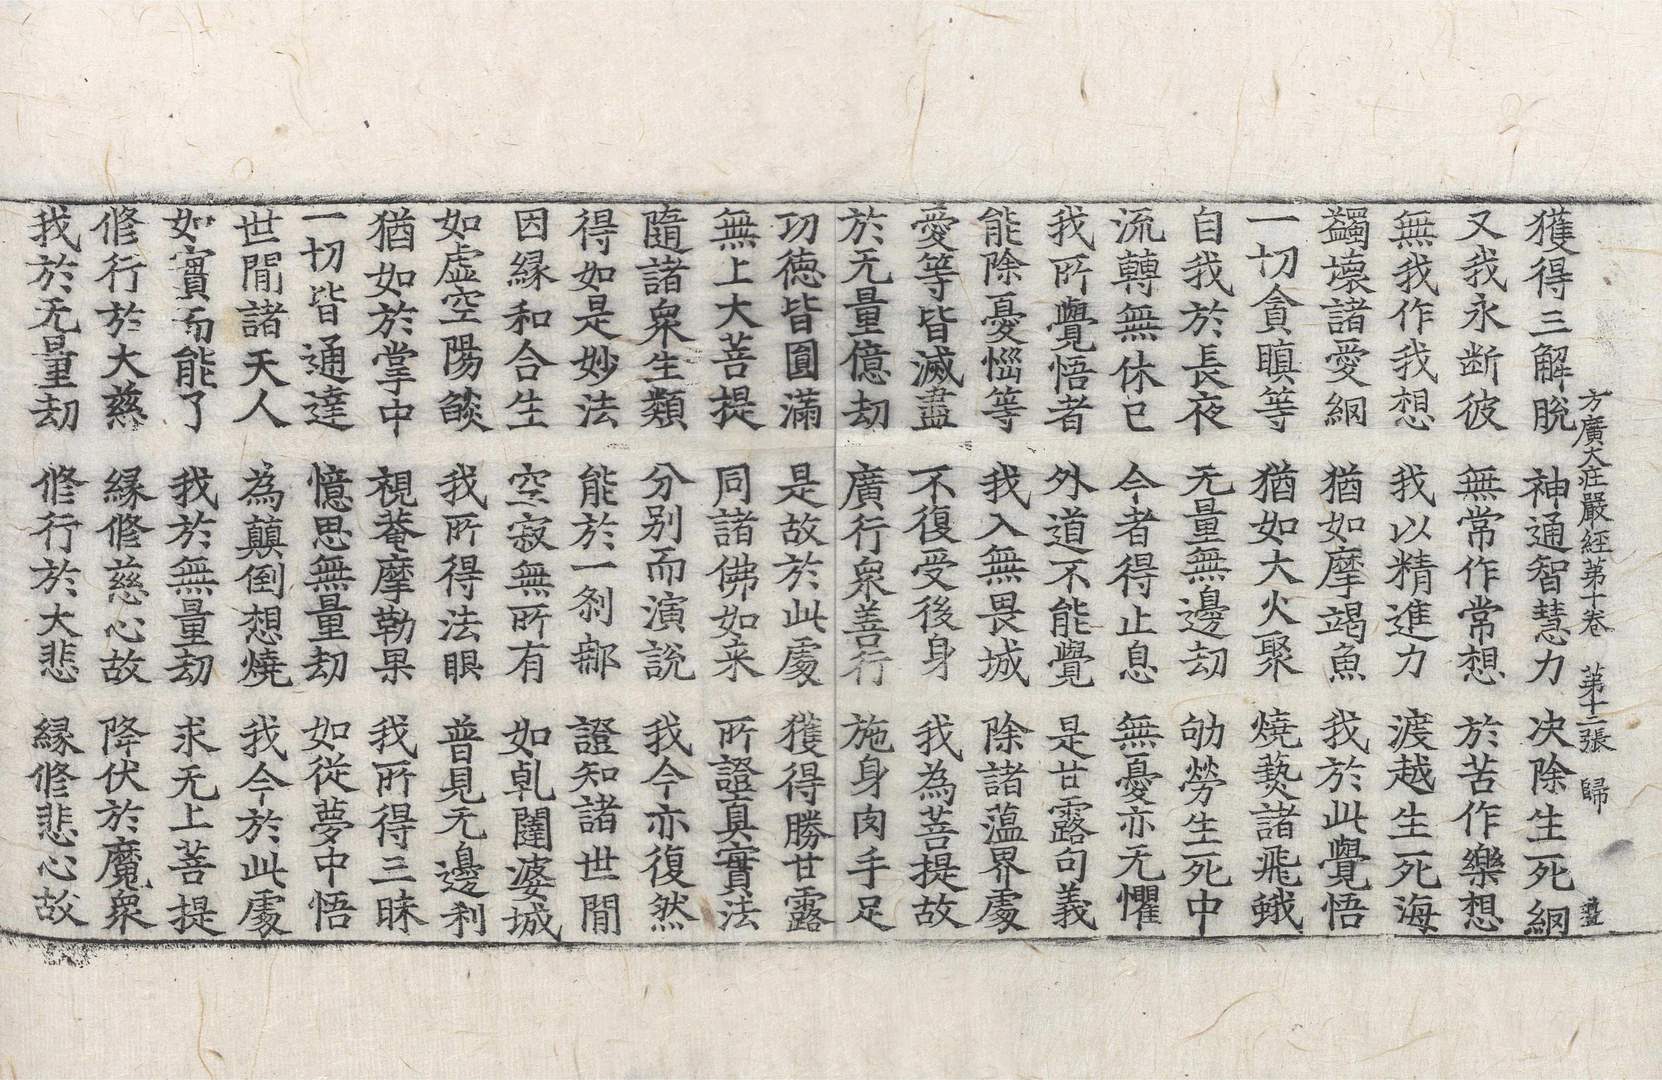 方廣大莊嚴經第十卷 第十二張 歸
獲得三解脫 神通智慧力 决除生死網
又我永斷彼 無常作常想 於苦作樂想
無我作我想 我以精進力 渡越生死海
蠲壞諸愛網 猶如摩竭魚 我於此覺悟
一切貪瞋等 猶如大火聚 燒爇諸飛蛾
自我於長夜 无量無邊劫 劬勞生死中
流轉無休已 今者得止息 無憂亦无懼
我所覺悟者 外道不能覺 是甘露句義
能除憂惱等 我入無畏城 除諸蕰界處
愛等皆滅盡 不復受後身 我為菩提故
於无量億劫 廣行衆善行 施身肉手足
功德皆圓滿 是故於此處 獲得勝甘露
無上大菩提 同諸佛如来 所證真實法
隨諸衆生類 分別而演說 我今亦復然
得如是妙法 能於一剎𨚗 證知諸世間
因緣和合生 空寂無所有 如乹闥婆城
如虛空陽𦦨 我所得法眼 普見无邊利
猶如於掌中 視菴摩勒果 我所得三昧
一切皆通達 憶思無量劫 如從夢中悟
世間諸天人 為顛倒想燒 我今於此處
如實而能了 我於無量劫 求无上菩提
修行於大慈 緣修慈心故 降伏於魔衆
我於无量劫 修行於大悲 緣修悲心故